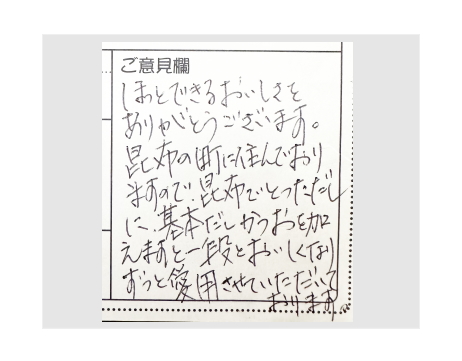 ご意見欄
ほっとできるおいしさを
ありがとうございます。
昆布の町に住んでおり
ますので、昆布でとっただし
に、基本だしかつおを加
えますと一段とおいしくなり
ずっと愛用させていただいて
おります。